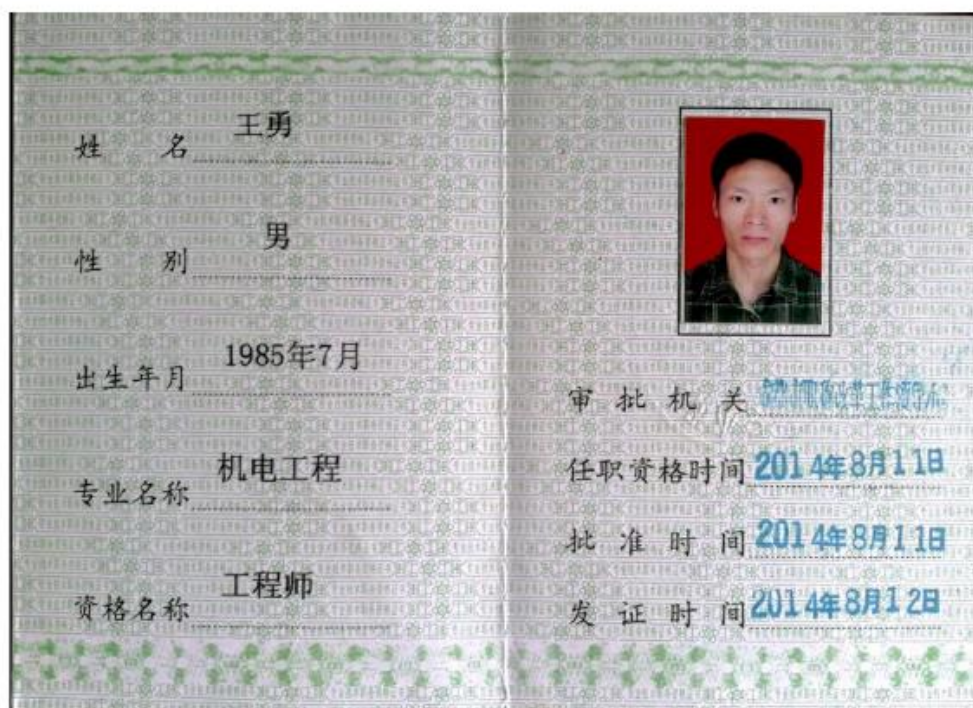 姓名 王勇
性别 男
出生年月 1985年7月
专业名称 机电工程
资格名称 工程师
审批机关
任职资格时间 2014年8月11日
批准时间 2014年8月11日
发证时间 2014年8月12日